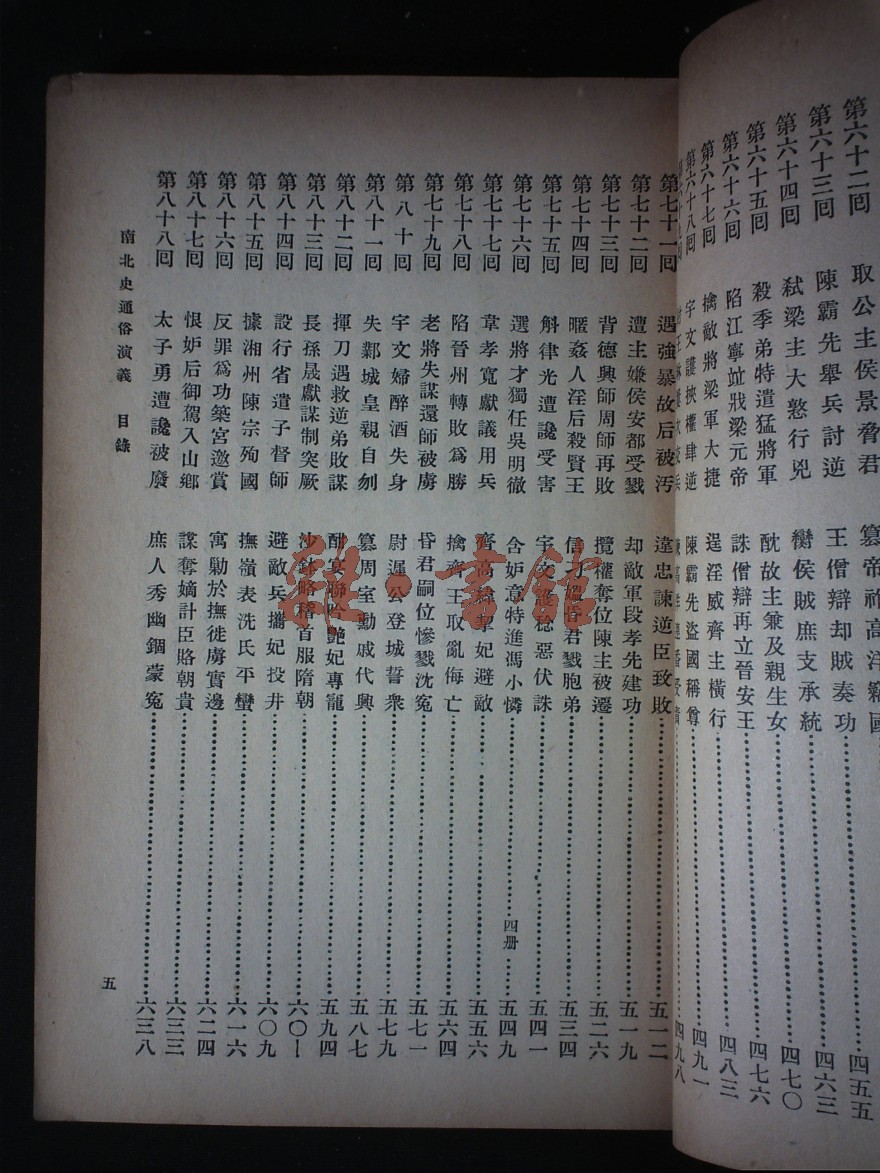 第六十二回 取公主侯景脅君 篡帝祚高洋竊國 四五五
第六十三回 陳霸先舉兵討逆 王僧辯却賊奏功 四六三
第六十四回 弒梁主大憝行兇 臠侯賊庶支承統 四七〇
第六十五回 殺季弟特遣猛將軍 酖故主兼及親生女 四七六
第六十六回 陷江寧竝戕梁元帝 誅僧辯再立晉安王 四八三
第六十七回 擒敵將梁軍大捷 逞淫威齊主橫行 四九一
第六十八回 宇文護挾權肆逆 陳霸先盜國稱尊 四九八
第七十一回 遇強暴故后被汚 違忠諫逆臣致敗 五一二
第七十二回 遭主嫌侯安都受戮 却敵軍段孝先建功 五一九
第七十三回 背德興師周師再敗 攬權奪位陳主被遷 五二六
第七十四回 暱姦人淫后殺賢王 信刁媼昏君戮胞弟 五三四
第七十五回 斛律光遭讒受害 宇文護稔惡伏誅 五四一
第七十六回 選將才獨任吳明徹 含妒意特進馮小憐 四册 五四九
第七十七回 韋孝寬獻議用兵 齊高緯挈妃避敵 五五六
第七十八回 陷晉州轉敗爲勝 擒齊王取亂侮亡 五六四
第七十九回 老將失謀還師被虜 昏君嗣位慘戮沈冤 五七一
第八十回 宇文婦醉酒失身 尉遲公登城誓衆 五七九
第八十一回 失鄴城皇親自刎 篡周室勳戚代興 五八七
第八十二回 揮刀遇救逆弟敗謀 酣宴聯吟艷妃專寵 五九四
第八十三回 長孫晟獻謀制突厥 沙鉢略稽首服隋朝 六〇一
第八十四回 設行省遣子督師 避敵兵攜妃投井 六〇九
第八十五回 據湘州陳宗殉國 撫嶺表洗氏平蠻 六一六
第八十六回 反罪爲功築宮邀賞 寓勦於撫徙虜實邊 六二四
第八十七回 恨妒后御駕入山鄉 謀奪嫡計臣賂朝貴 六三三
第八十八回 太子勇遭讒被廢 庶人秀幽錮蒙冤 六三八
南北史通俗演義 目錄
五
雜·書館